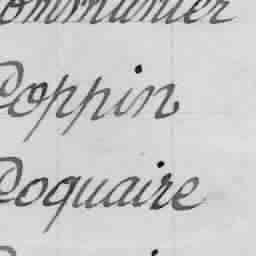 Communier
Coppin
Coquaire